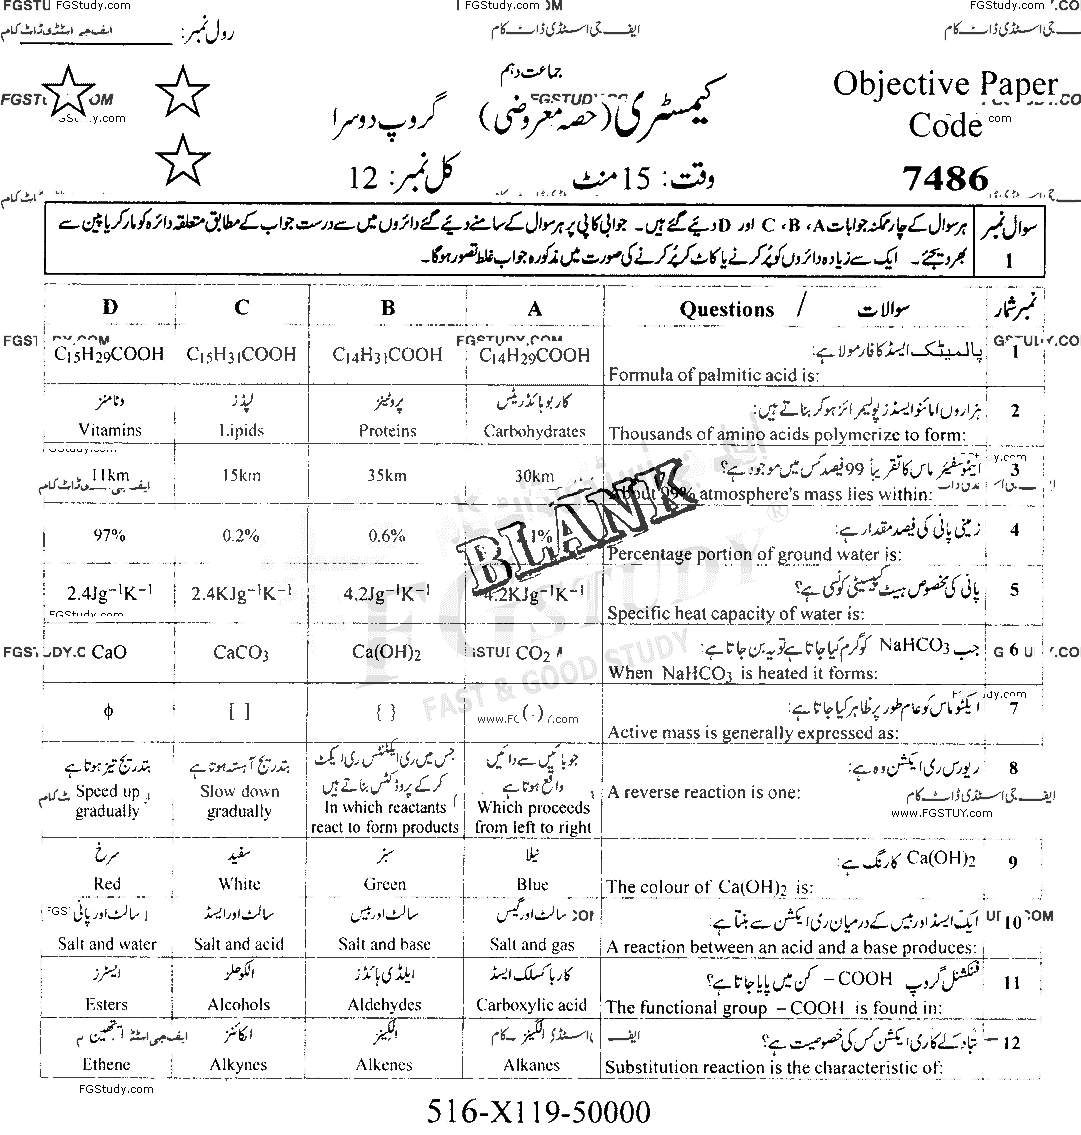 FGSTU FGStudy.com
FGStudy.com OM
FGStudy.com
رول نمبر:
ایف جی اسٹڈی ڈاٹ کام
جماعت دہم
کیمسٹری (حصہ معروضی) گروپ دوسرا
Objective Paper
Code
7486
وقت: 15 منٹ کل نمبر: 12
سوال نمبر 1
ہر سوال کے چار ممکنہ جوابات A ، B ، C اور D دیے گئے ہیں۔ جوابی کاپی پر ہر سوال کے سامنے دیے گئے دائروں میں سے درست جواب کے مطابق متعلقہ دائرہ کو مارکر یا پین سے
بھر دیجئے۔ ایک سے زیادہ دائروں کو پُر کرنے یا کاٹ کر پُر کرنے کی صورت میں مذکورہ جواب غلط تصور ہوگا۔
D C B A Questions / سوالات نمبر شمار
پالمیٹک ایسڈ کا فارمولا ہے: 1
C₁₅H₂₉COOH C₁₅H₃₁COOH C₁₄H₃₁COOH C₁₄H₂₉COOH
Formula of palmitic acid is:
وٹامنز لپڈز پروٹینز کاربوہائڈریٹس ہزاروں امائنو ایسڈز پولیمرائز ہو کر بناتے ہیں: 2
Vitamins Lipids Proteins Carbohydrates Thousands of amino acids polymerize to form:
ایٹموسفیئر ماس کا تقریباً 99 فیصد کس میں موجود ہے؟ 3
11km 15km 35km 30km
99% atmosphere's mass lies within:
BLANK
زمینی پانی کی فیصد مقدار ہے: 4
97% 0.2% 0.6%
Percentage portion of ground water is:
پانی کی مخصوص ہیٹ کپیسٹی کونسی ہے؟ 5
2.4Jg⁻¹K⁻¹ 2.4KJg⁻¹K⁻¹ 4.2Jg⁻¹K⁻¹ 4.2KJg⁻¹K⁻¹
Specific heat capacity of water is:
FGStudy.com
جب NaHCO₃ کو گرم کیا جاتا ہے تو یہ بن جاتا ہے: 6
CaO CaCO₃ Ca(OH)₂ CO₂
When NaHCO₃ is heated it forms:
FGSTUDY
FAST & GOOD STUDY
ایکٹو ماس کو عام طور پر ظاہر کیا جاتا ہے: 7
ϕ [ ] { } ( )
Active mass is generally expressed as:
بتدریج تیز ہوتا ہے بتدریج آہستہ ہوتا ہے جس میں ری ایکٹنٹس ری ایکٹ کر کے پروڈکٹس بناتے ہیں جو بائیں سے دائیں واقع ہوتا ہے ریورس ری ایکشن وہ ہے: 8
Speed up gradually Slow down gradually In which reactants react to form products Which proceeds from left to right A reverse reaction is one:
ایف جی اسٹڈی ڈاٹ کام
www.FGSTUY.com
سرخ سفید سبز نیلا Ca(OH)₂ کا رنگ ہے: 9
Red White Green Blue The colour of Ca(OH)₂ is:
سالٹ اور پانی سالٹ اور ایسڈ سالٹ اور بیس سالٹ اور گیس ایک ایسڈ اور بیس کے درمیان ری ایکشن سے بنتا ہے: 10
Salt and water Salt and acid Salt and base Salt and gas A reaction between an acid and a base produces:
ایسٹرز الکوحلز ایلڈی ہائڈز کاربا کسلک ایسڈ فنکشنل گروپ –COOH کن میں پایا جاتا ہے؟ 11
Esters Alcohols Aldehydes Carboxylic acid The functional group –COOH is found in:
ایتھین الکائنز الکینز الکینز تبادلے کا ری ایکشن کس کی خصوصیت ہے؟ 12
Ethene Alkynes Alkenes Alkanes Substitution reaction is the characteristic of:
FGStudy.com
516-X119-50000